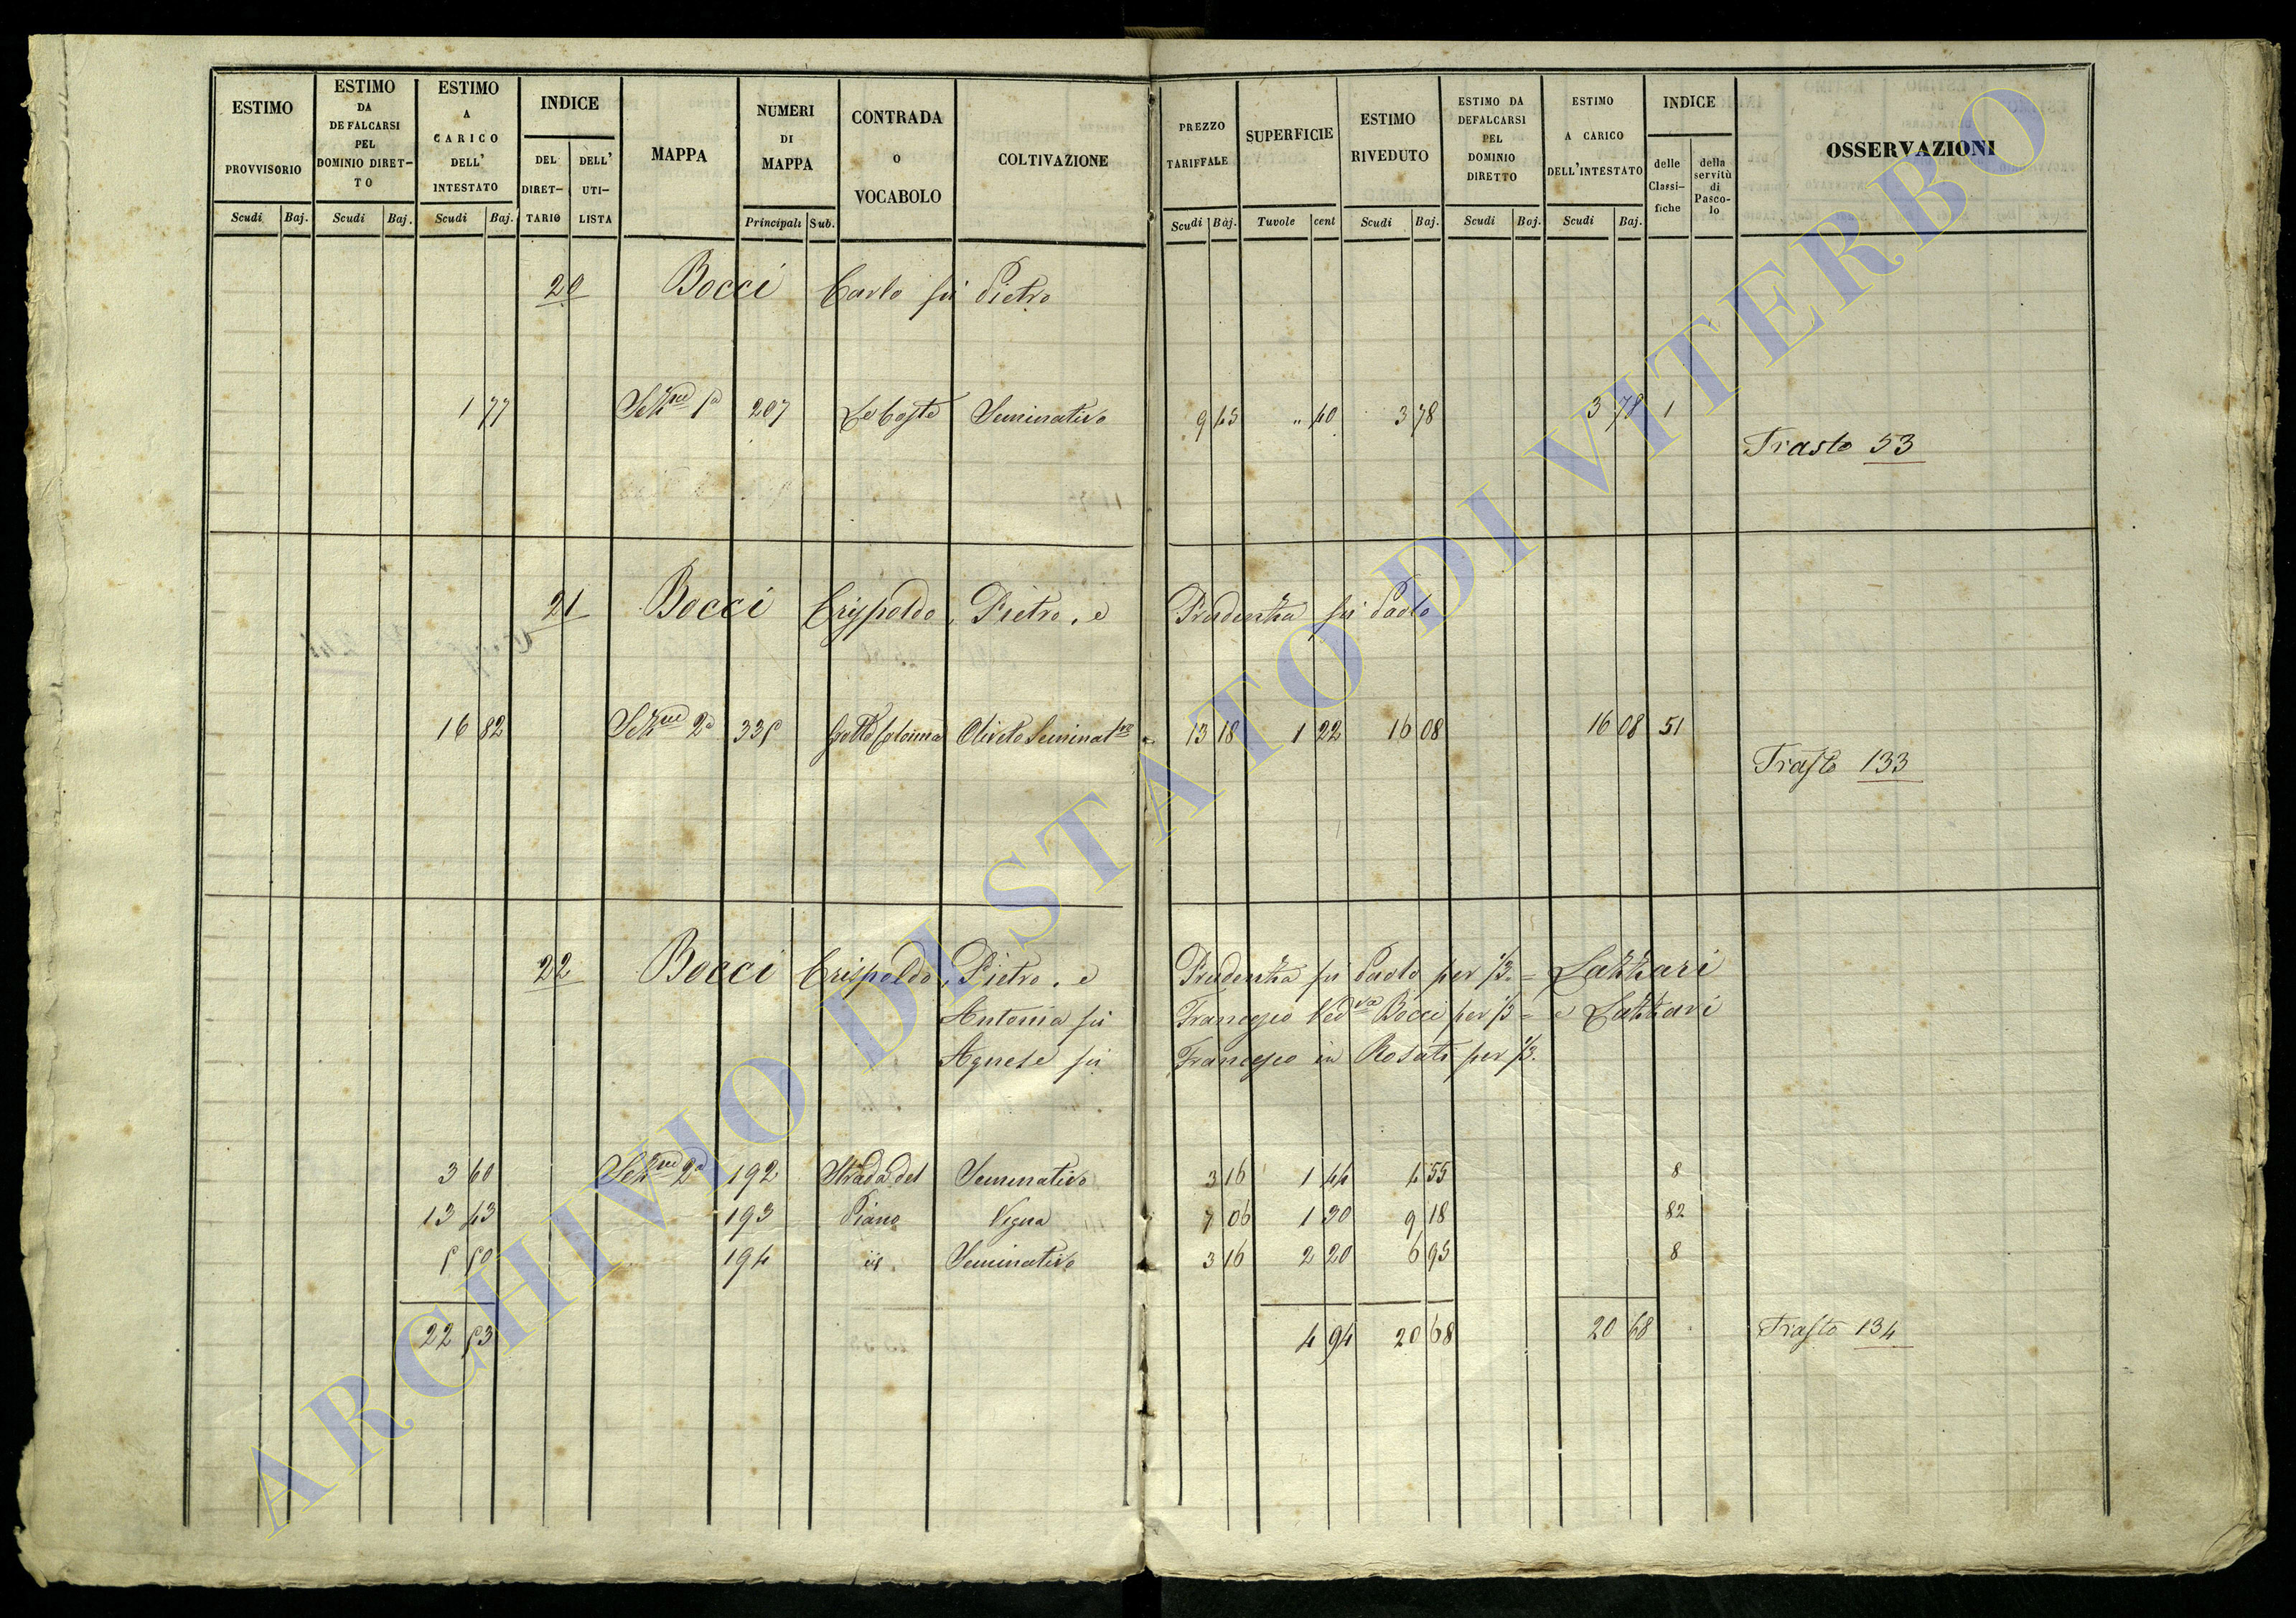 ESTIMO PROVVISORIO Scudi Baj.
ESTIMO DA DEFALCARSI PEL DOMINIO DIRET-TO Scudi Baj.
ESTIMO A CARICO DELL' INTESTATO Scudi Baj.
INDICE DEL DIRET-TARIO DELL' UTI-LISTA
MAPPA
NUMERI DI MAPPA Principali Sub.
CONTRADA O VOCABOLO
COLTIVAZIONE
PREZZO TARIFFALE Scudi Baj.
SUPERFICIE Tavole cent
ESTIMO RIVEDUTO Scudi Baj.
ESTIMO DA DEFALCARSI PEL DOMINIO DIRETTO Scudi Baj.
ESTIMO A CARICO DELL'INTESTATO Scudi Baj.
INDICE delle Classi-fiche della servitù di Pasco-lo
OSSERVAZIONI
20 Bocci Carlo fu Pietro
1 77 Sez.ne 1a 207 Le Coste Seminativo 9 45 " 40 3 78 3 78 1
Trasto 53
21 Bocci Crispoldo, Pietro, e Prudenzia fu Paolo
16 82 Sez.ne 2a 335 Oliveto Seminat.vo 13 18 1 22 16 08 16 08 51
Trasto 133
22 Bocci Crispoldo, Pietro, e Prudenzia fu Paolo per 1/3 = Lazzari
Antonia fu Francesco Ved.va Bocci per 1/3 = e Lazzari
Agnese fu Francesco in Rosati per 1/3.
3 60 Sez.ne 2a 192 Strada del Seminativo 3 16 1 44 4 55 8
13 43 193 Piano Vigna 7 06 1 30 9 18 82
5 50 194 Seminativo 3 16 2 20 6 95 8
22 53 4 94 20 68 20 68 Trasto 134
ARCHIVIO DI STATO DI VITERBO